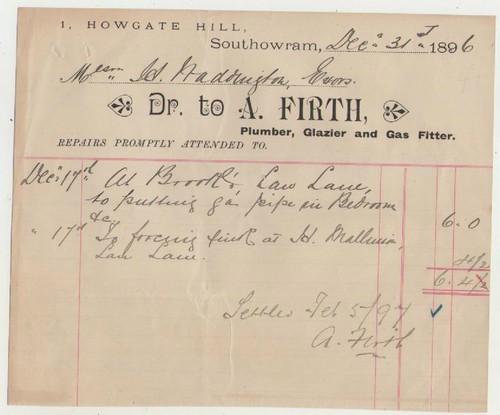 1, HOWGATE HILL,
Southowram, Decr 31st 1896
Messrs H. Waddington, Exors.
Dr. to A. FIRTH,
Plumber, Glazier and Gas Fitter.
REPAIRS PROMPTLY ATTENDED TO.
Decr 17th At Brook's, Law Lane,
to putting gas pipe in Bedroom
&c. 6. 0
" 17th To forcing sink at H.
Law Lane. 4½
6. 4½
Settled Feb 5/97
A. Firth